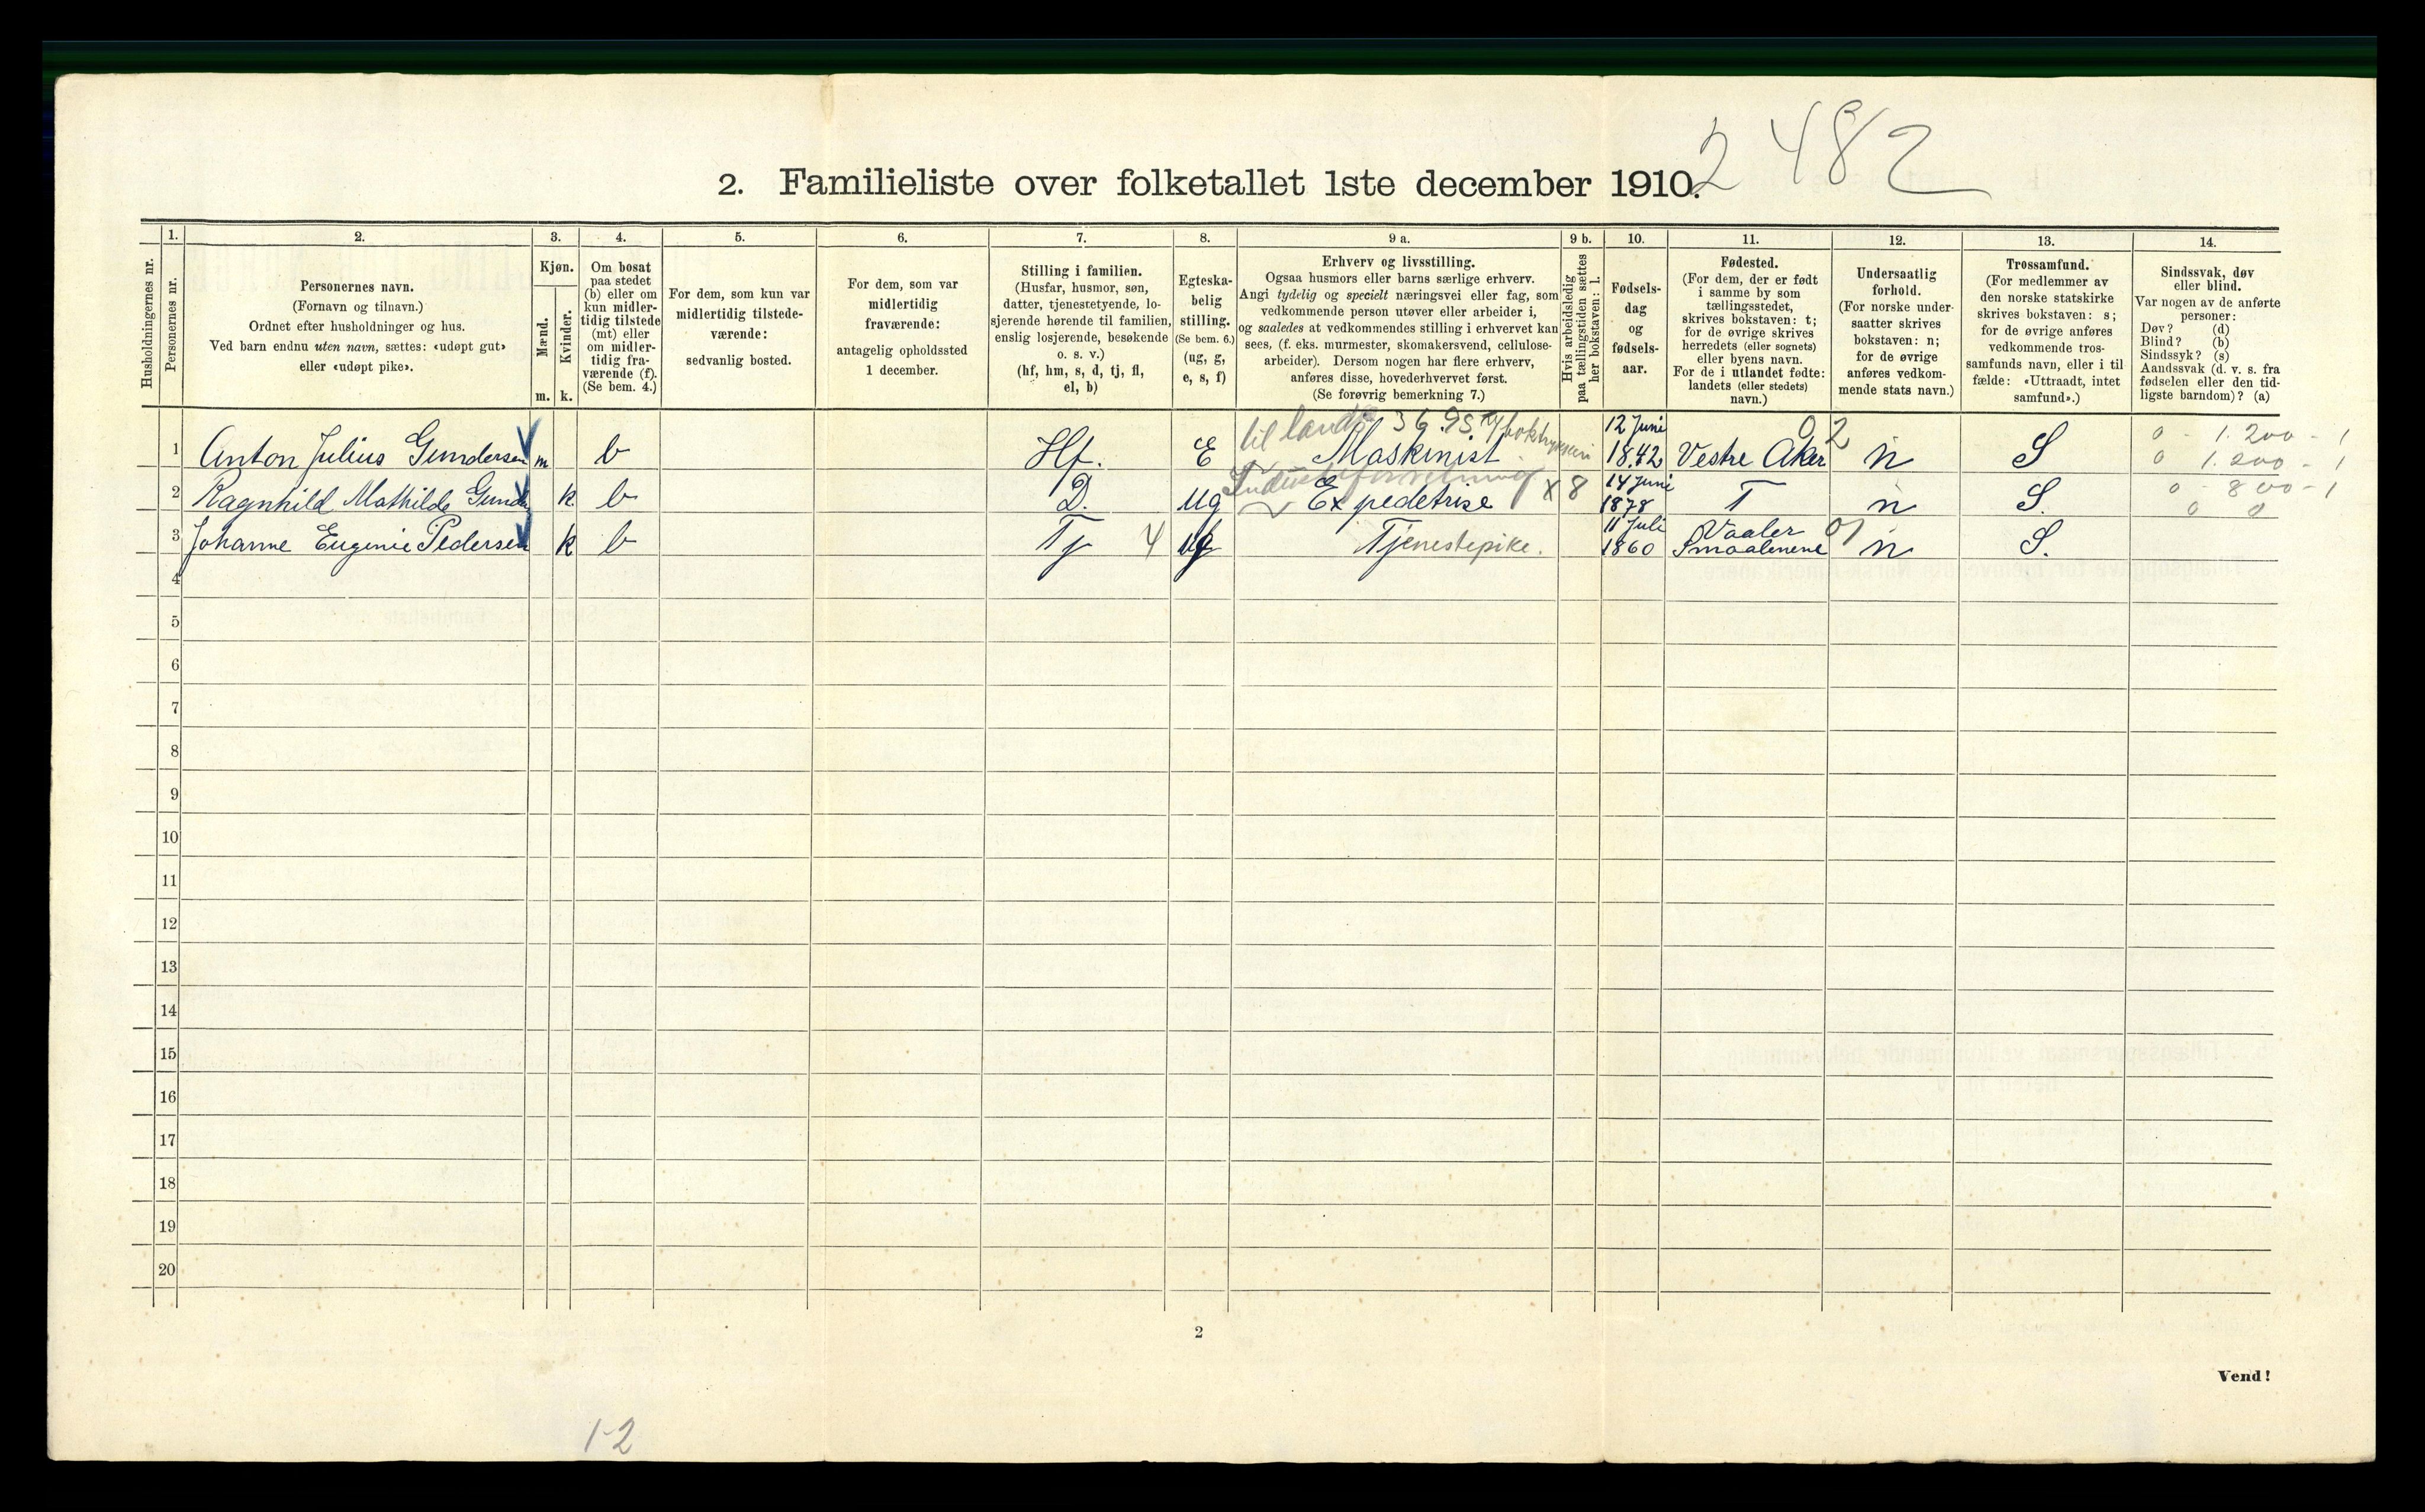 2482
2. Familieliste over folketallet 1ste december 1910.
Husholdningernes nr.
1.
Personernes nr.
2.
Personernes navn.
(Fornavn og tilnavn.)
Ordnet efter husholdninger og hus.
Ved barn endnu uten navn, sættes: «udøpt gut»
eller «udøpt pike».
3.
Kjøn.
Mænd.
Kvinder.
m. k.
4.
Om bosat
paa stedet
(b) eller om
kun midler-
tidig tilstede
(mt) eller
om midler-
tidig fra-
værende (f).
(Se bem. 4.)
5.
For dem, som kun var
midlertidig tilstede-
værende:
sedvanlig bosted.
6.
For dem, som var
midlertidig
fraværende:
antagelig opholdssted
1 december.
7.
Stilling i familien.
(Husfar, husmor, søn,
datter, tjenestetyende, lo-
sjerende hørende til familien,
enslig losjerende, besøkende
o. s. v.)
(hf, hm, s, d, tj, fl,
el, b)
8.
Egteska-
belig
stilling.
(Se bem. 6.)
(ug, g,
e, s, f)
9 a.
Erhverv og livsstilling.
Ogsaa husmors eller barns særlige erhverv.
Angi tydelig og specielt næringsvei eller fag, som
vedkommende person utøver eller arbeider i,
og saaledes at vedkommendes stilling i erhvervet kan
sees, (f. eks. murmester, skomakersvend, cellulose-
arbeider). Dersom nogen har flere erhverv,
anføres disse, hovederhvervet først.
(Se forøvrig bemerkning 7.)
9 b.
Hvis arbeidsledig
paa tællingstiden sættes
her bokstaven: l.
10.
Fødsels-
dag
og
fødsels-
aar.
11.
Fødested.
(For dem, der er født
i samme by som
tællingsstedet,
skrives bokstaven: t;
for de øvrige skrives
herredets (eller sognets)
eller byens navn.
For de i utlandet fødte:
landets (eller stedets)
navn.)
12.
Undersaatlig
forhold.
(For norske under-
saatter skrives
bokstaven: n;
for de øvrige
anføres vedkom-
mende stats navn.)
13.
Trossamfund.
(For medlemmer av
den norske statskirke
skrives bokstaven: s;
for de øvrige anføres
vedkommende tros-
samfunds navn, eller i til
fælde: «Uttraadt, intet
samfund».)
14.
Sindssvak, døv
eller blind.
Var nogen av de anførte
personer:
Døv? (d)
Blind? (b)
Sindssyk? (s)
Aandssvak (d. v. s. fra
fødselen eller den tid-
ligste barndom)? (a)
til lands 36.95 12 Juni 02 0 - 1.200 - 1
1 Anton Julius Gundersen m b Hf. E Maskinist 1842 Vestre Aker n S 0 1.200 - 1
14 Juni 0 - 800 - 1
2 Ragnhild Mathilde Gunder k b D. ug Expedetrise x 8 1878 T n S. 0 0
11 Juli Vaaler 01
3 Johanne Eugenie Pedersen k b Tj 4 Tjenestepike. 1860 Smaalenene n S.
4
5
6
7
8
9
10
11
12
13
14
15
16
17
18
19
20
2
Vend!
1-2